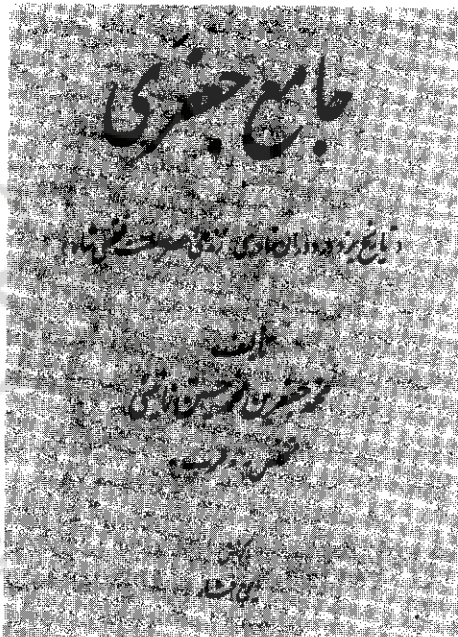 جامع جعفری
در تاریخ یزد در دوران نادری، زندی و عصر سلطنت فتحعلی شاه
تألیف
محمد جعفر بن محمد حسین نائینی
متخلص به «طرب»
بکوشش
ایرج افشار